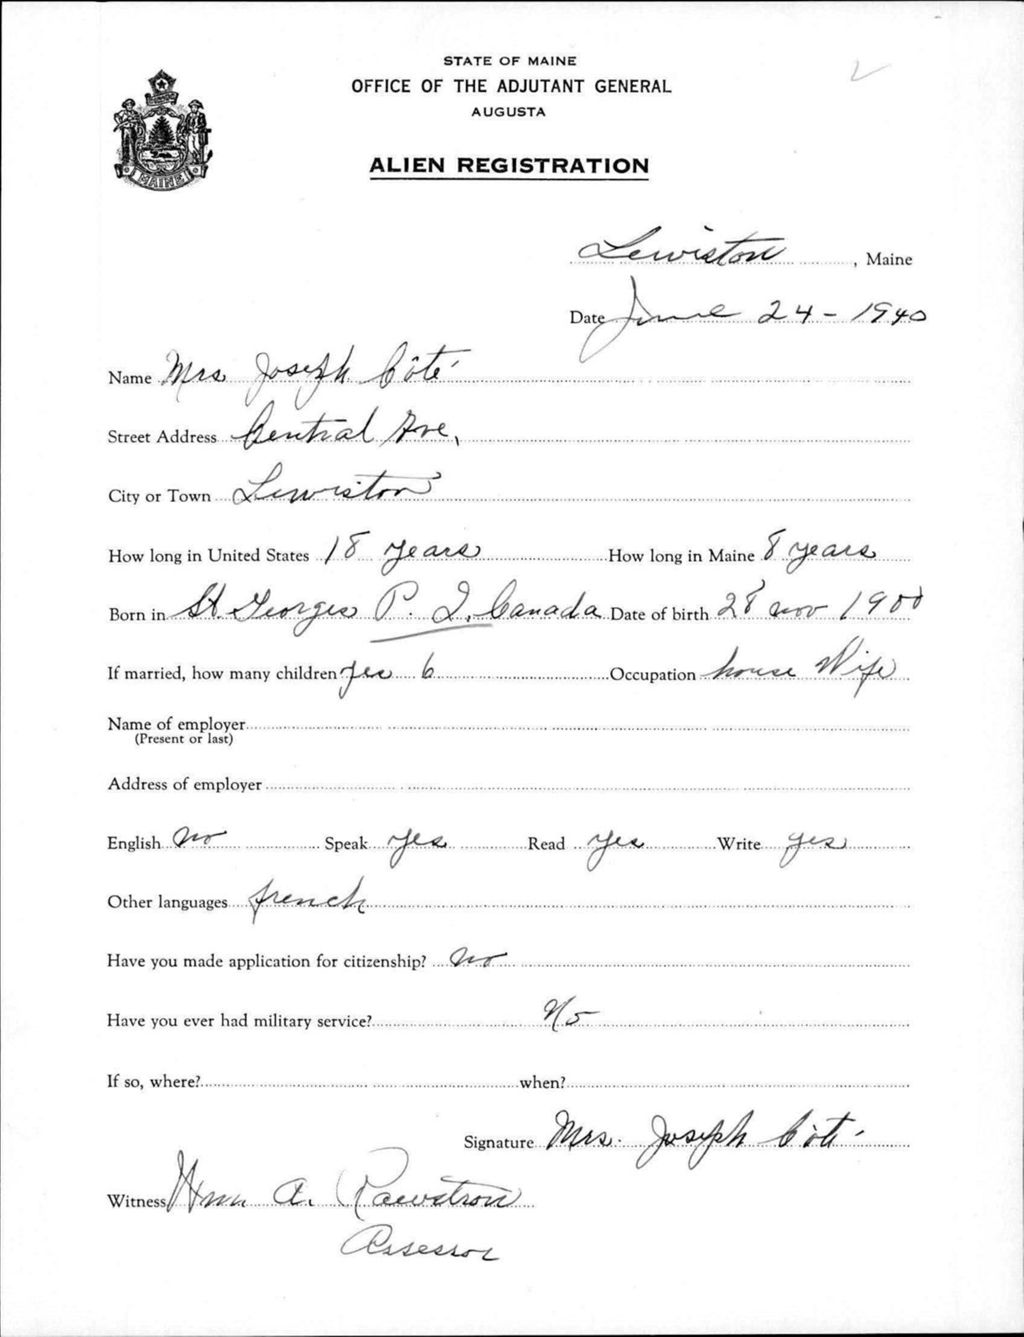 STATE OF MAINE
OFFICE OF THE ADJUTANT GENERAL
AUGUSTA
ALIEN REGISTRATION
MAINE
Lewiston, Maine
Date June 24 - 1940
Name Mrs Joseph Côté
Street Address Central Ave,
City or Town Lewiston
How long in United States 18 years How long in Maine 8 years
Born in St. Georges P. Q. Canada Date of birth 28 nov 1900
If married, how many children yes 6 Occupation house Wife
Name of employer
(Present or last)
Address of employer
English no Speak yes Read yes Write yes
Other languages french
Have you made application for citizenship? no
Have you ever had military service? No
If so, where? when?
Signature Mrs. Joseph Côté
Witness Wm. A. Rawstron
Assessor